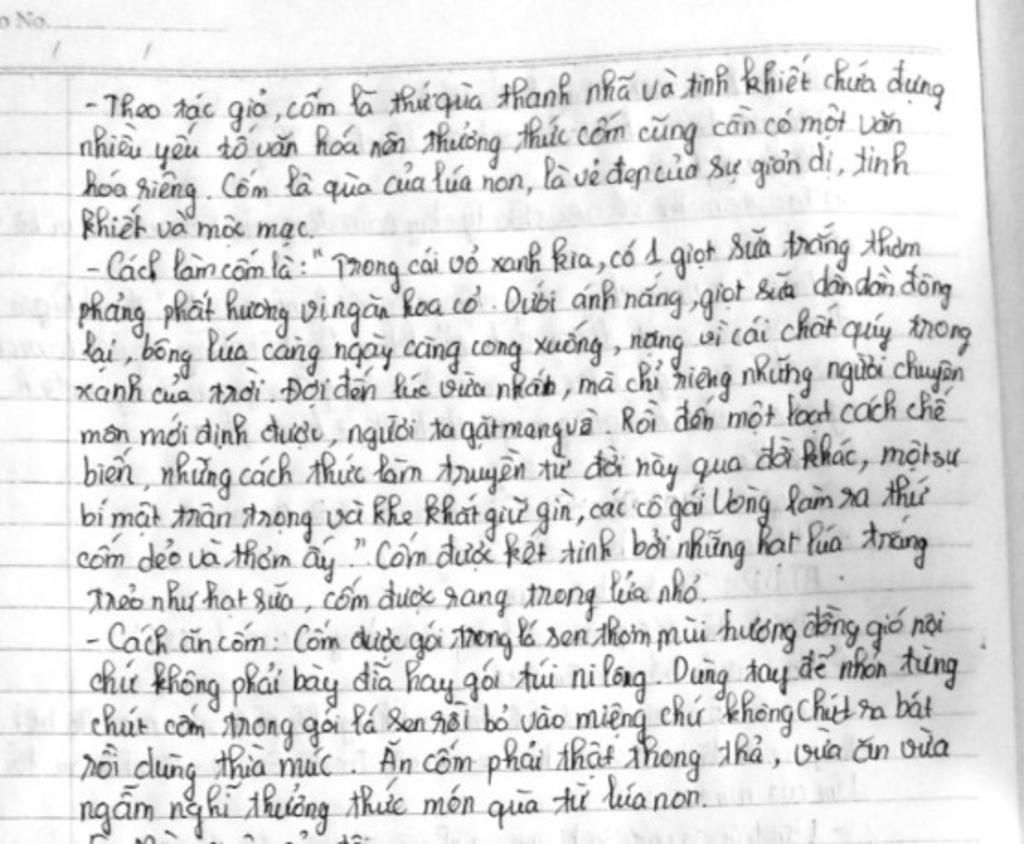 o No.
- Theo tác giả, cốm là thứ quà thanh nhã và tinh khiết chứa đựng
nhiều yếu tố văn hóa nên thưởng thức cốm cũng cần có một văn
hóa riêng. Cốm là quà của lúa non, là vẻ đẹp của sự giản dị, tinh
khiết và mộc mạc.
- Cách làm cốm là: "Trong cái vỏ xanh kia, có 1 giọt sữa trắng thơm
phảng phất hương vị ngàn hoa cỏ. Dưới ánh nắng, giọt sữa dần dần đông
lại, bông lúa càng ngày càng cong xuống, nặng vì cái chất quý trong
xanh của trời. Đợi đến lúc vừa nhất, mà chỉ riêng những người chuyên
môn mới định được, người ta gặt mang về. Rồi đến một loạt cách chế
biến, những cách thức làm truyền từ đời này qua đời khác, một sự
bí mật trân trọng và khe khắt giữ gìn, các cô gái Vòng làm ra thứ
cốm dẻo và thơm ấy." Cốm được kết tinh bởi những hạt lúa trắng
trẻo như hạt sữa, cốm được rang trong lửa nhỏ.
- Cách ăn cốm: Cốm được gói trong lá sen thơm mùi hương đồng gió nội
chứ không phải bày đĩa hay gói túi ni lông. Dùng tay để nhón từng
chút cốm trong gói lá sen rồi bỏ vào miệng chứ không chút ra bát
rồi dùng thìa múc. Ăn cốm phải thật thong thả, vừa ăn vừa
ngẫm nghĩ thưởng thức món quà từ lúa non.